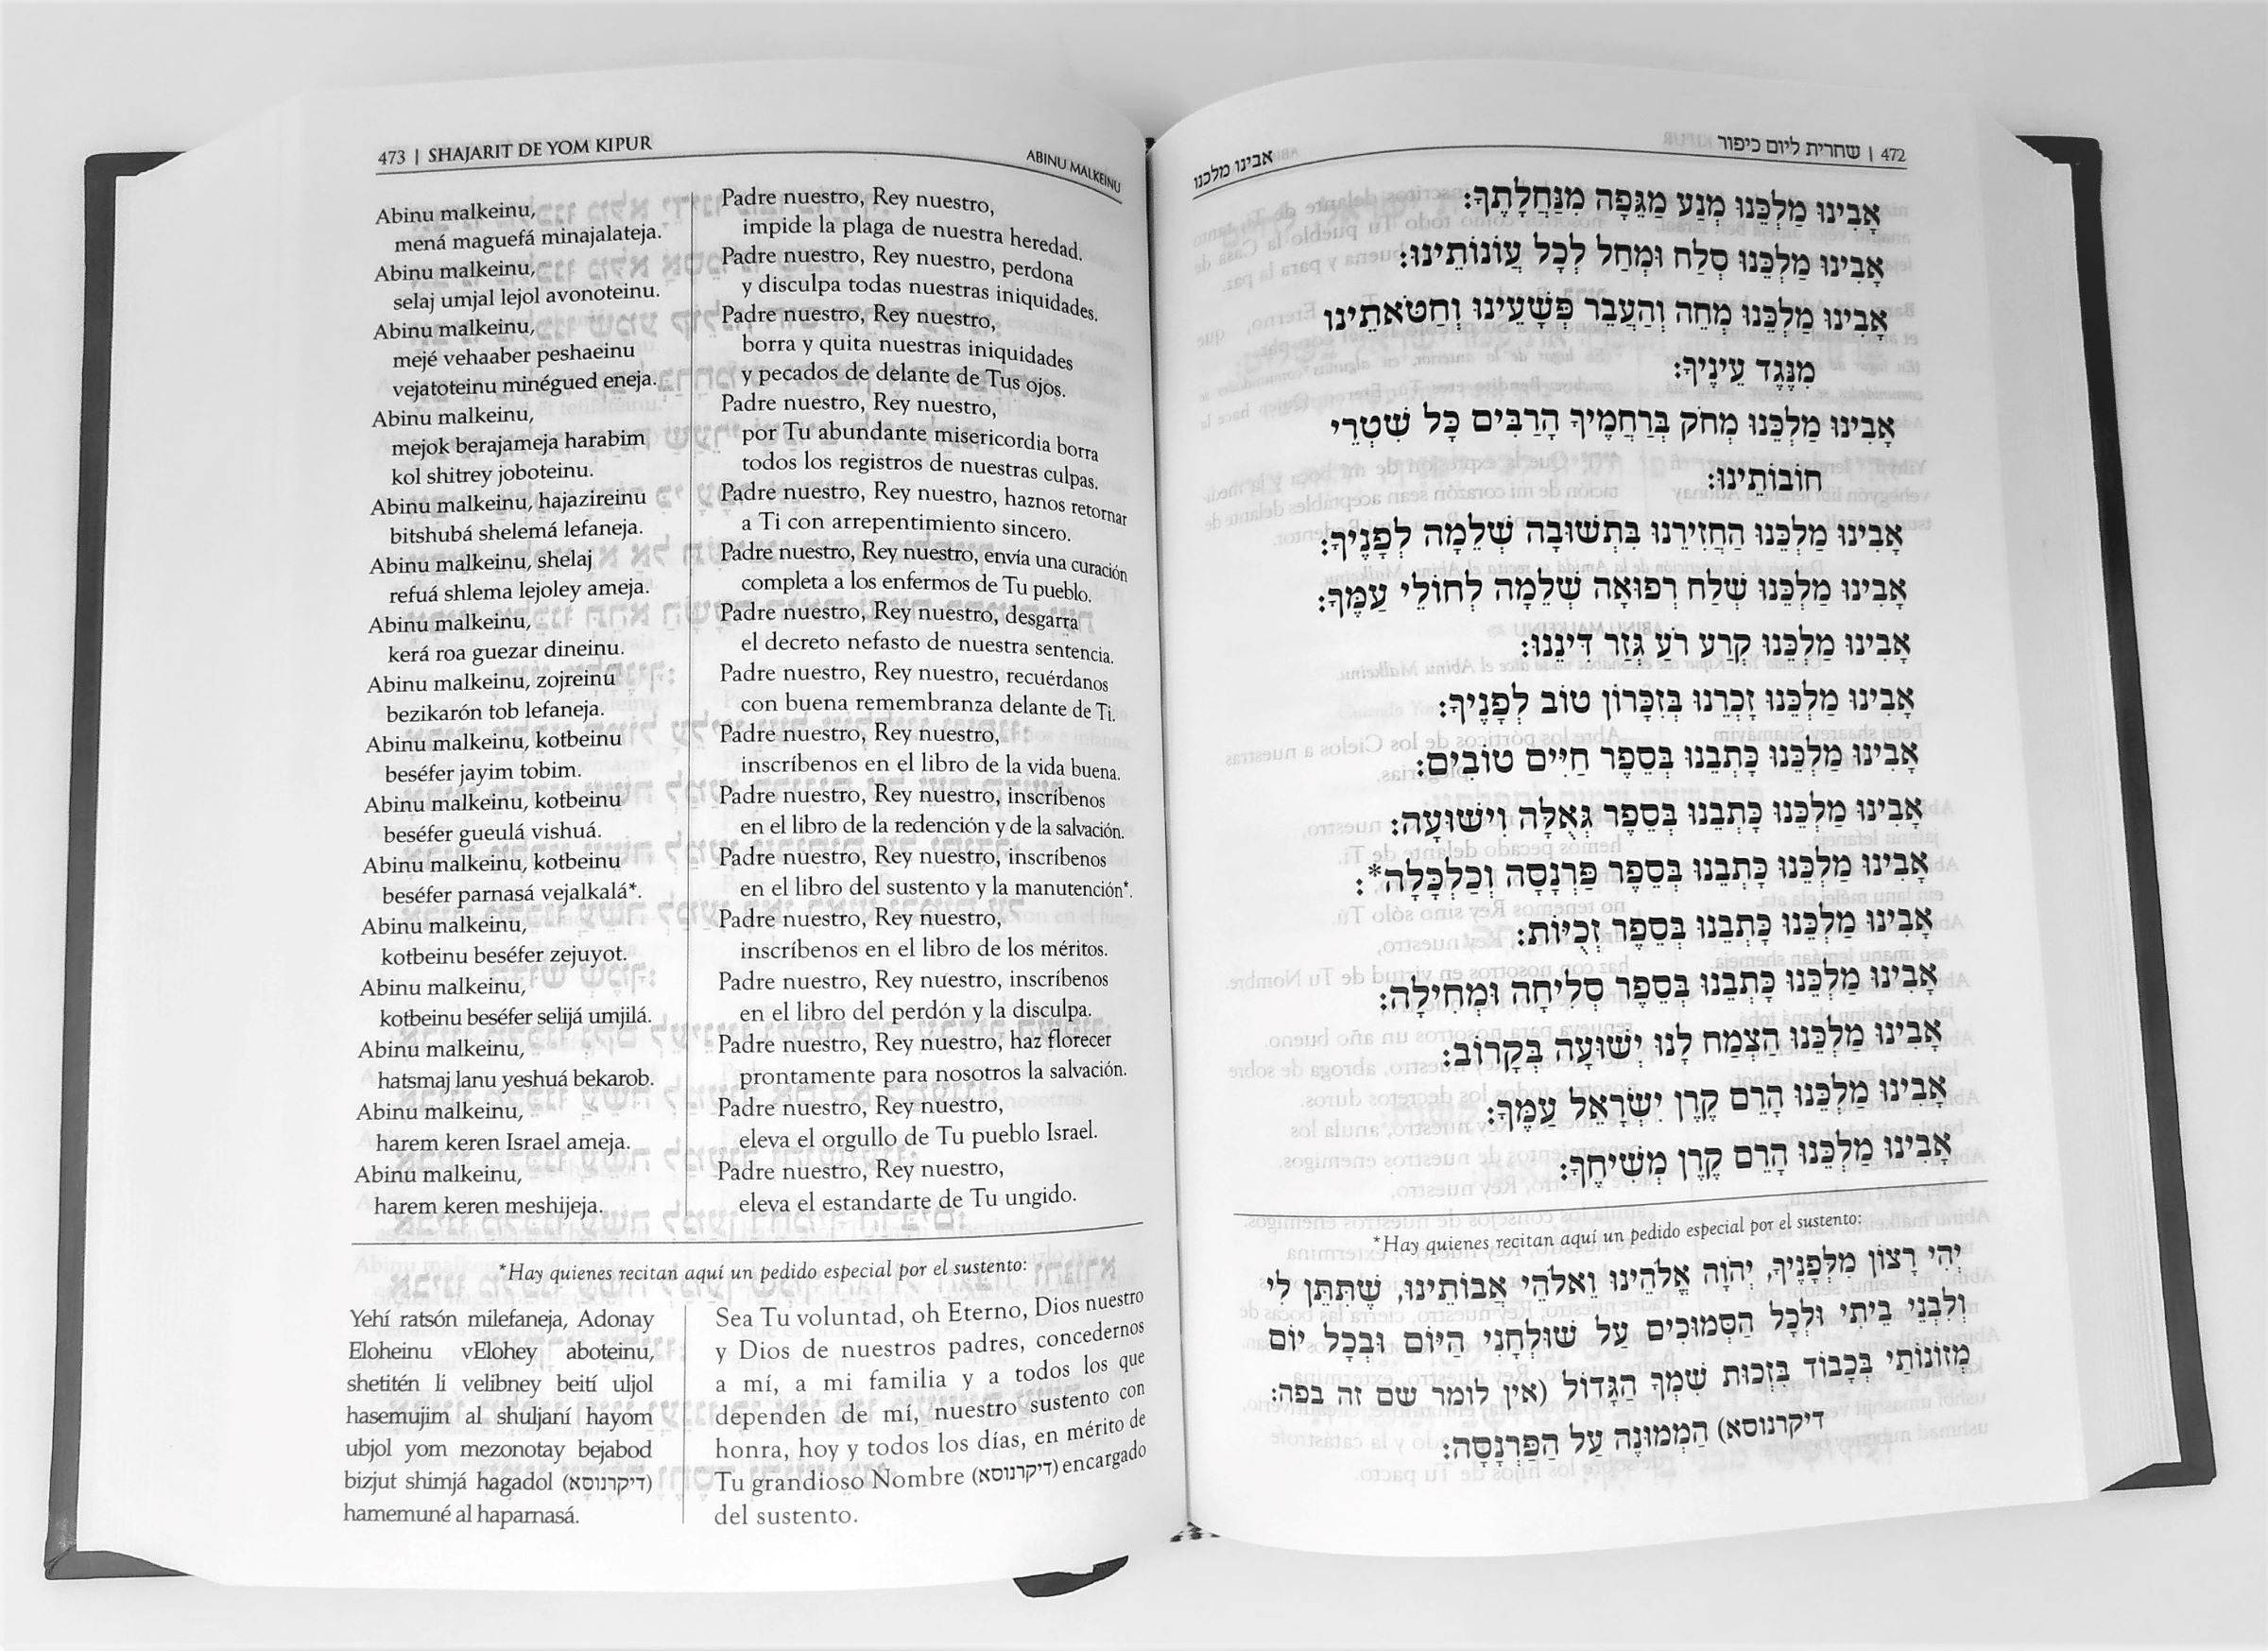 שחרית ליום כיפור | 472
אבינו מלכנו
אָבִינוּ מַלְכֵּנוּ מְנַע מַגֵּפָה מִנַּחֲלָתֶךָ:
אָבִינוּ מַלְכֵּנוּ סְלַח וּמְחַל לְכָל עֲוֹנוֹתֵינוּ:
אָבִינוּ מַלְכֵּנוּ מְחֵה וְהַעֲבֵר פְּשָׁעֵינוּ וְחַטֹּאתֵינוּ
מִנֶּגֶד עֵינֶיךָ:
אָבִינוּ מַלְכֵּנוּ מְחֹק בְּרַחֲמֶיךָ הָרַבִּים כָּל שִׁטְרֵי
חוֹבוֹתֵינוּ:
אָבִינוּ מַלְכֵּנוּ הַחֲזִירֵנוּ בִּתְשׁוּבָה שְׁלֵמָה לְפָנֶיךָ:
אָבִינוּ מַלְכֵּנוּ שְׁלַח רְפוּאָה שְׁלֵמָה לְחוֹלֵי עַמֶּךָ:
אָבִינוּ מַלְכֵּנוּ קְרַע רֹעַ גְּזַר דִּינֵנוּ:
אָבִינוּ מַלְכֵּנוּ זָכְרֵנוּ בְּזִכָּרוֹן טוֹב לְפָנֶיךָ:
אָבִינוּ מַלְכֵּנוּ כָּתְבֵנוּ בְּסֵפֶר חַיִּים טוֹבִים:
אָבִינוּ מַלְכֵּנוּ כָּתְבֵנוּ בְּסֵפֶר גְּאֻלָּה וִישׁוּעָה:
אָבִינוּ מַלְכֵּנוּ כָּתְבֵנוּ בְּסֵפֶר פַּרְנָסָה וְכַלְכָּלָה*:
אָבִינוּ מַלְכֵּנוּ כָּתְבֵנוּ בְּסֵפֶר זְכֻיּוֹת:
אָבִינוּ מַלְכֵּנוּ כָּתְבֵנוּ בְּסֵפֶר סְלִיחָה וּמְחִילָה:
אָבִינוּ מַלְכֵּנוּ הַצְמַח לָנוּ יְשׁוּעָה בְּקָרוֹב:
אָבִינוּ מַלְכֵּנוּ הָרֵם קֶרֶן יִשְׂרָאֵל עַמֶּךָ:
אָבִינוּ מַלְכֵּנוּ הָרֵם קֶרֶן מְשִׁיחֶךָ:
*Hay quienes recitan aquí un pedido especial por el sustento:
יְהִי רָצוֹן מִלְּפָנֶיךָ, יְהֹוָה אֱלֹהֵינוּ וֵאלֹהֵי אֲבוֹתֵינוּ, שֶׁתִּתֵּן לִי
וְלִבְנֵי בֵיתִי וּלְכָל הַסְּמוּכִים עַל שׁוּלְחָנִי הַיּוֹם וּבְכָל יוֹם
מְזוֹנוֹתַי בְּכָבוֹד בִּזְכוּת שִׁמְךָ הַגָּדוֹל (אין לומר שם זה בפה:
דיקרנוסא) הַמְמוּנֶּה עַל הַפַּרְנָסָה:
473 | SHAJARIT DE YOM KIPUR
ABINU MALKEINU
Abinu malkeinu,
mená maguefá minajalateja.
Abinu malkeinu,
selaj umjal lejol avonoteinu.
Abinu malkeinu,
mejé vehaaber peshaeinu
vejatoteinu minégued eneja.
Abinu malkeinu,
mejok berajameja harabim
kol shitrey joboteinu.
Abinu malkeinu, hajazireinu
bitshubá shelemá lefaneja.
Abinu malkeinu, shelaj
refuá shlema lejoley ameja.
Abinu malkeinu,
kerá roa guezar dineinu.
Abinu malkeinu, zojreinu
bezikarón tob lefaneja.
Abinu malkeinu, kotbeinu
beséfer jayim tobim.
Abinu malkeinu, kotbeinu
beséfer gueulá vishuá.
Abinu malkeinu, kotbeinu
beséfer parnasá vejalkalá*.
Abinu malkeinu,
kotbeinu beséfer zejuyot.
Abinu malkeinu,
kotbeinu beséfer selijá umjilá.
Abinu malkeinu,
hatsmaj lanu yeshuá bekarob.
Abinu malkeinu,
harem keren Israel ameja.
Abinu malkeinu,
harem keren meshijeja.
Padre nuestro, Rey nuestro,
impide la plaga de nuestra heredad.
Padre nuestro, Rey nuestro, perdona
y disculpa todas nuestras iniquidades.
Padre nuestro, Rey nuestro,
borra y quita nuestras iniquidades
y pecados de delante de Tus ojos.
Padre nuestro, Rey nuestro,
por Tu abundante misericordia borra
todos los registros de nuestras culpas.
Padre nuestro, Rey nuestro, haznos retornar
a Ti con arrepentimiento sincero.
Padre nuestro, Rey nuestro, envía una curación
completa a los enfermos de Tu pueblo.
Padre nuestro, Rey nuestro, desgarra
el decreto nefasto de nuestra sentencia.
Padre nuestro, Rey nuestro, recuérdanos
con buena remembranza delante de Ti.
Padre nuestro, Rey nuestro,
inscríbenos en el libro de la vida buena.
Padre nuestro, Rey nuestro, inscríbenos
en el libro de la redención y de la salvación.
Padre nuestro, Rey nuestro, inscríbenos
en el libro del sustento y la manutención*.
Padre nuestro, Rey nuestro,
inscríbenos en el libro de los méritos.
Padre nuestro, Rey nuestro, inscríbenos
en el libro del perdón y la disculpa.
Padre nuestro, Rey nuestro, haz florecer
prontamente para nosotros la salvación.
Padre nuestro, Rey nuestro,
eleva el orgullo de Tu pueblo Israel.
Padre nuestro, Rey nuestro,
eleva el estandarte de Tu ungido.
*Hay quienes recitan aquí un pedido especial por el sustento:
Yehí ratsón milefaneja, Adonay
Eloheinu vElohey aboteinu,
shetitén li velibney beití uljol
hasemujim al shuljaní hayom
ubjol yom mezonotay bejabod
bizjut shimjá hagadol (דיקרנוסא)
hamemuné al haparnasá.
Sea Tu voluntad, oh Eterno, Dios nuestro
y Dios de nuestros padres, concedernos
a mí, a mi familia y a todos los que
dependen de mí, nuestro sustento con
honra, hoy y todos los días, en mérito de
Tu grandioso Nombre (דיקרנוסא) encargado
del sustento.